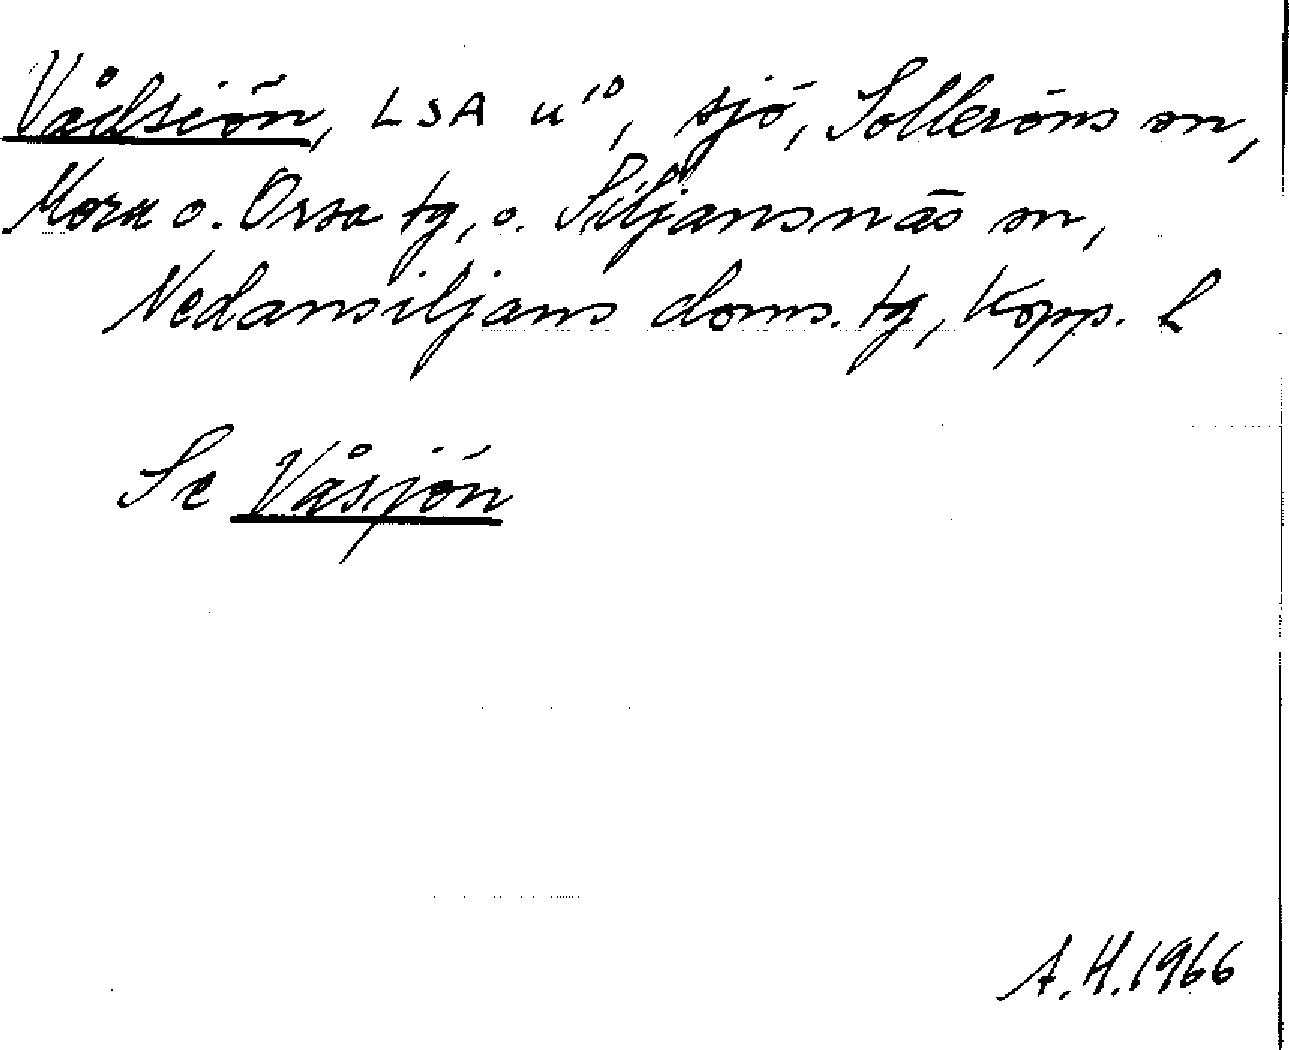 Vådsiön, LSA u¹⁰, sjö, Solleröns sn,
Mora o. Orsa tg, o. Siljansnäs sn,
Nedansiljans doms. tg, Kopp. l
Se Våsjön
A.H.1966